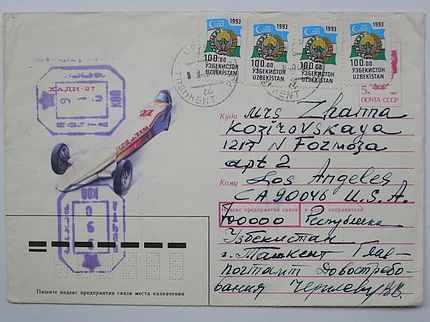 1993 1993 1993 1993
100.00 100.00 100.00 100.00
ЎЗБЕКИСТОН ЎЗБЕКИСТОН ЎЗБЕКИСТОН ЎЗБЕКИСТОН
UZBEKISTAN UZBEKISTAN UZBEKISTAN UZBEKISTAN
TASHKENT
5к
ПОЧТА СССР
ХАДИ-27
27
Куда Mrs Zhanna
Kozirovskaya
1217 N Formosa
apt 2
Кому Los Angeles
CA 90046 U.S.A.
Индекс предприятия связи и адрес отправителя
700000 Республика
Узбекистан
г. Ташкент Глав-
почтамт Довостребо-
вания
Пишите индекс предприятия связи места назначения